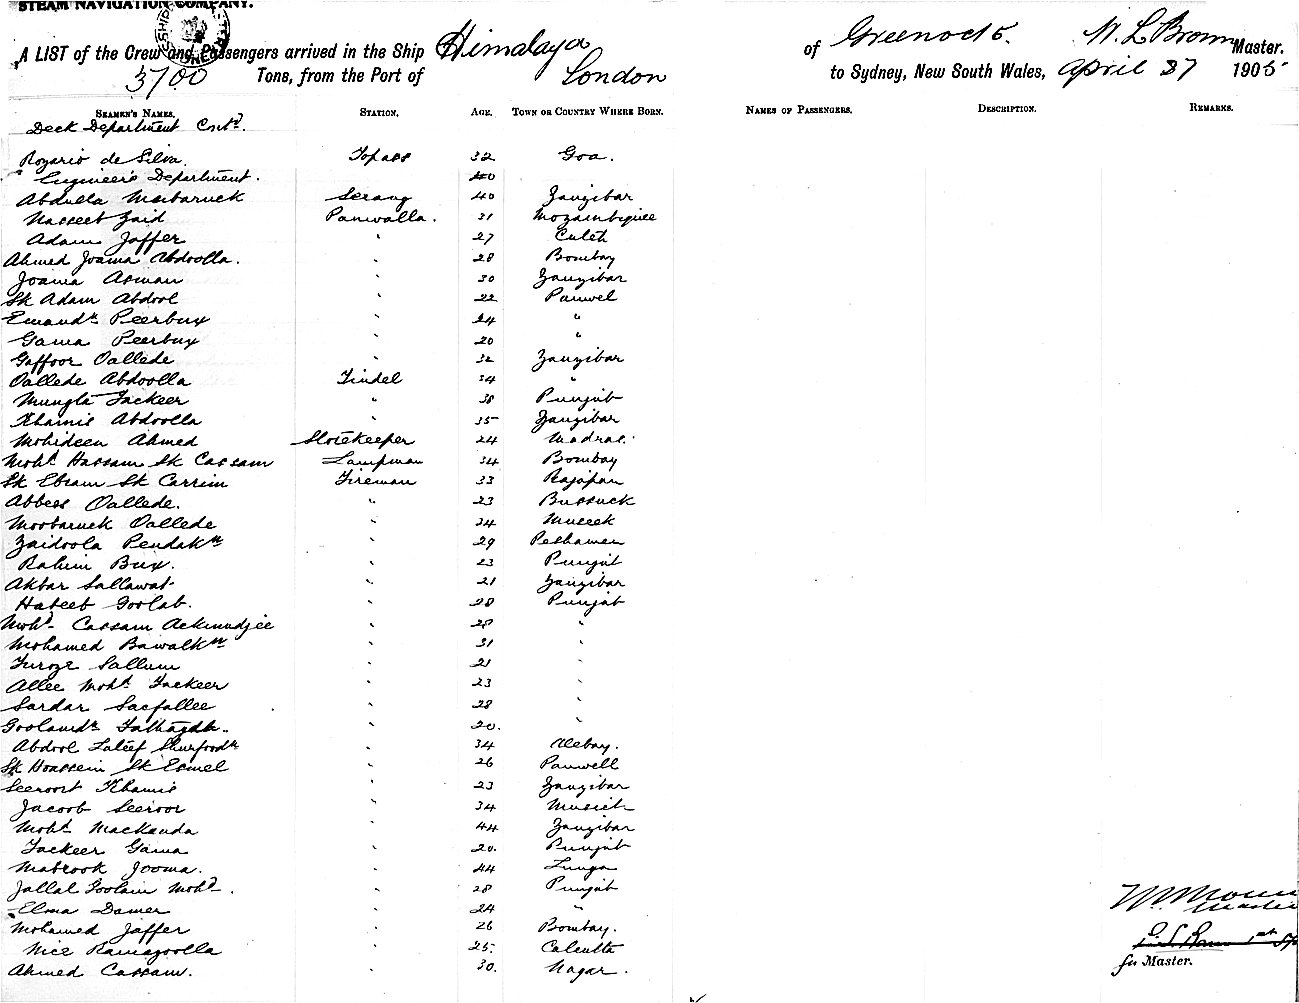 STEAM NAVIGATION COMPANY.
A LIST of the Crew and Passengers arrived in the Ship Himalaya of Greenock W. L Brown Master.
3700 Tons, from the Port of London to Sydney, New South Wales, April 27 1905
SEAMEN'S NAMES. STATION. AGE. TOWN OR COUNTRY WHERE BORN. NAMES OF PASSENGERS. DESCRIPTION. REMARKS.
Deck Department Contd.
Rozario de Silva. Topass 32 Goa.
Engineers Department. 40
Abdulla Marbaruck Serang 40 Zanzibar
Nasseeb Zaid Paniwalla. 31 Mozambique
Adam Jaffer " 27 Cutch
Ahmed Joama Abdoolla. " 28 Bombay
Joama Asman " 30 Zanzibar
Sk Adam Abdool " 22 Panwel
Emamdn Peerbux " 24 "
Gama Peerbux " 20 "
Gaffoor Oallede " 32 Zanzibar
Oallede Abdoolla Tindel 34 "
Mungla Fackeer " 38 Punjab
Khamis Abdoolla " 35 Zanzibar
Mohideen Ahmed Storekeeper 24 Madras.
Mohd Hassam Sk Cassam Lampman 34 Bombay
Sk Ebram Sk Carrim Fireman 33 Rajapan
Abbess Oallede. " 23 Bussuck
Moobaruck Oallede " 34
Zaidoola " 29
Rahim Bux. " 23 Punjab
Akbar Sallawat " 21 Zanzibar
Habeeb Goolab. " 28 Punjab
Mohd Cassam Ackmudjee " 28 "
Mohamed " 31 "
Furoze Sallum " 21 "
Allee Mohd Fackeer " 23 "
Sardar Saefallee " 28 "
" 20. "
Abdool Lateef " 34
Sk Hoassein Sk Esmel " 26 Panwell
Seeroor Khamis " 23 Zanzibar
Jacoob Seeroor " 34
Mohd Mackanda " 44 Zanzibar
Fackeer Gama " 20. Punjab
Mabrook Jooma. " 44 Lunga
Jallal Goolam Mohd. " 28 Punjab
Elma Damer " 24 "
Mohamed Jaffer " 26 Bombay.
Nice Ramazoolla " 25. Calcutta
Ahmed Cassam. " 30. Nagar.
Master
for Master.